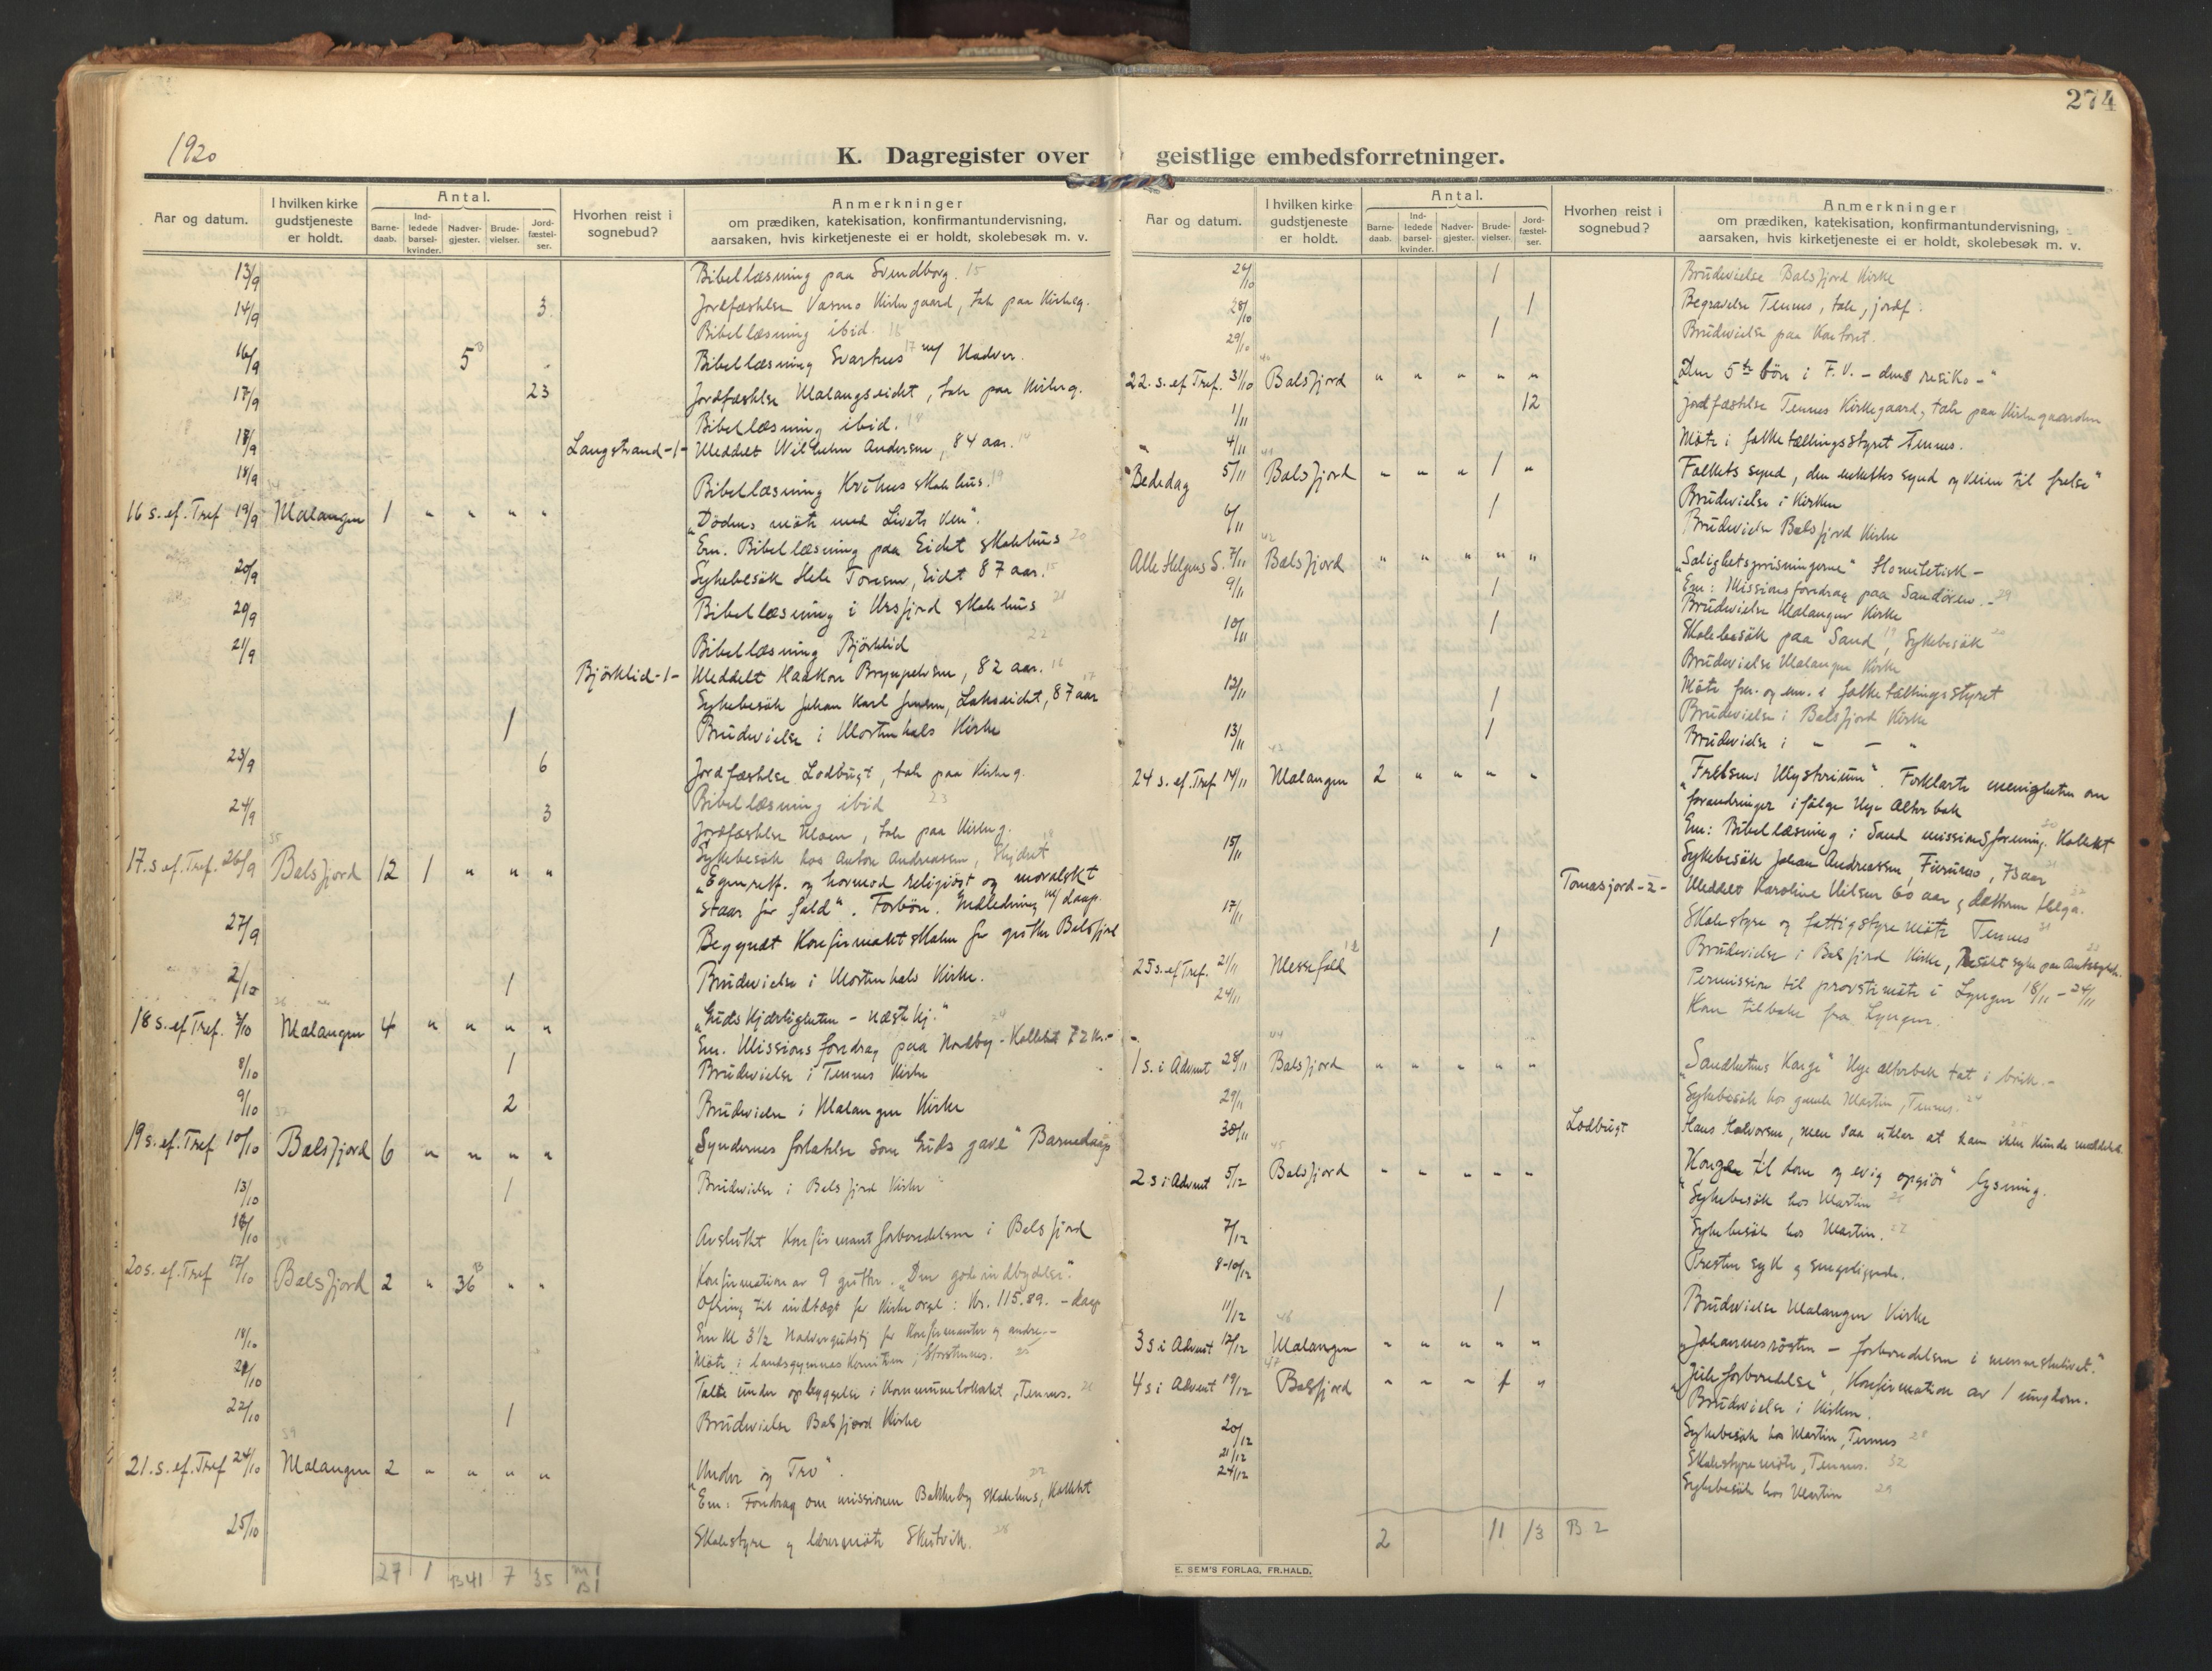 274
1920
K. Dagregister over geistlige embedsforretninger.
Aar og datum. I hvilken kirke gudstjeneste er holdt. Antal. Barnedaab. Indledede barselkvinder. Nadvergjester. Brudevielser. Jordfæstelser. Hvorhen reist i sognebud? Anmerkninger om prædiken, katekisation, konfirmantundervisning, aarsaken, hvis kirketjeneste ei er holdt, skolebesøk m. v.
13/9 Bibellæsning paa Svendborg. 15
14/9 3 Jordfæstelse Kirkegaard, tale paa Kirkeg.
Bibellæsning ibid. 16
16/9 5 Bibellæsning Svartnes 17 m/ Nadver.
17/9 23 Jordfæstelse Malangseidet, tale paa Kirkeg.
Bibellæsning ibid.
18/9 Langstrand -1- Meddelt Wilhelm Andersen, 84 aar. 14
18/9 Bibellæsning skolehus. 19
16 s. ef. Tref 19/9 Malangen 1 " " " "
"Dödens möte med Livets
Em. Bibellæsning paa Eidet skolehus 20
20/9 Sykebesök Toresen, Eidet 87 aar. 15
20/9 Bibellæsning i skolehus 21
21/9 Bibellæsning Björklid 22
Björklid -1- Meddelt Haakon 82 aar. 16
Sykebesök Johan Karl Jensen, 87 aar 17
1 Brudevielse i Mortenhals Kirke
23/9 6 Jordfæstelse Lodbugt, tale paa Kirkeg.
Bibellæsning ibid 23
24/9 3 Jordfæstelse tale paa Kirkeg.
Sykebesök hos Anton Andreassen,
17. s. ef. Tref. 26/9 35 Balsfjord 12 1 " " "
og hovmod religiöst og moralskt
staar for fald". Forbön. Indledning m/ daap.
27/9 Begyndt Konfirmantskolen for gutter Balsfjord
2/10 1 Brudevielse i Mortenhals Kirke.
18 s. ef Tref. 3/10 36 Malangen 4 " " " "
"Guds Kjærligheten – næstkj."
Em. Missionsforedrag paa Nordby – Kollekt 72 Kr.–
8/10 1 Brudevielse i Tennes Kirke
9/10 2 Brudevielse i Malangen Kirke
19 s. ef. Tref 10/10 37 Balsfjord 6 " " " "
"Syndernes forlatelse som Guds gave" Barnedaap
13/10 1 Brudevielse i Balsfjord Kirke
16/10 Avsluttet Konfirmantforberedelsen i Balsfjord
20 s. ef. Tref 17/10 38 Balsfjord 2 " 36 " "
Konfirmation av 9 gutter. "Den gode indbydelse".
Ofring til indtægt for Kirkeorgel: Kr. 115.89. – daap
Em Kl 3½ Nadvergudstj for Konfirmanter og andre.–
18/10 Möte i landsgymnas Komiteen, Storsteinnes. 25
21/10 Talte under opbyggelse i Kommunelokalet, Tennes. 26
22/10 1 Brudevielse Balsfjord Kirke
21. s. ef. Tref 24/10 39 Malangen 2 " " " "
"Under og Tro".
Em: Foredrag om missionen Bakkeby skolehus, Kollekt 27
25/10 Skolestyre og lærermöte Skutvik. 28
27 1 B41 7 35 M 1 B 1
Aar og datum. I hvilken kirke gudstjeneste er holdt. Antal. Barnedaab. Indledede barselkvinder. Nadvergjester. Brudevielser. Jordfæstelser. Hvorhen reist i sognebud? Anmerkninger om prædiken, katekisation, konfirmantundervisning, aarsaken, hvis kirketjeneste ei er holdt, skolebesøk m. v.
26/10 1 Brudevielse Balsfjord Kirke
28/10 1 Begravelse Tennes, tale, jordf.
29/10 1 Brudevielse paa Kontoret.
22. s. ef Tref. 31/10 40 Balsfjord " " " " "
"Den 5te bön i F. V. – dens resiko –"
1/11 12 Jordfæstelse Tennes Kirkegaard, tale paa Kirkegaarden
4/11 Möte i folketællingsstyret Tennes.
Bededag 5/11 41 Balsfjord " " " 1 "
"Folkets synd, den enkeltes synd og veien til frelse"
Brudevielse i Kirken
6/11 1 Brudevielse Balsfjord Kirke
Alle Helgens S. 7/11 42 Balsfjord " " " " "
"Salighetsprisningerne" Homiletisk –
Em: Missionsforedrag paa Sandören.– 29
9/11 1 Brudevielse Malangen Kirke
10/11 1 Skolebesök paa Sand, 19 Sykebesök 20
Brudevielse Malangen Kirke
12/11 1 Möte fm. og em. i folketællingsstyret
Brudevielse i Balsfjord Kirke
13/11 1 Brudevielse i " – "
24 s. ef. Tref 14/11 43 Malangen 2 " " " "
"Frelsens Mysterium". Forklarte menigheten om
forandringer ifölge Nye Alterbok
Em: Bibellæsning i Sand missionsforening. 30 Kollekt
15/11 Sykebesök Johan Andreassen, 73 aar 21
Tomasjord -2- Meddelt Karoline Nilsen 60 aar og datteren Helga. 22
17/11 Skolestyre og fattigstyremöte Tennes 31
1 Brudevielse i Balsfjord Kirke, Besökt syke paa 23
25 s. ef Tref. 21/11 Messefald 12
Permission til provstemöte i Lyngen 18/11 – 24/11
24/11 Kom tilbake fra Lyngen.
1 s. i Advent 28/11 44 Balsfjord " " " " "
"Sandhetens Konge" Nye alterbok tat i bruk.–
29/11 Sykebesök hos gamle Martin, Tennes. 24
30/11 Lodbugt Hans Halvorsen, men saa uklar at han ikke kunde meddeles. 25
2 s i Advent 5/12 45 Balsfjord " " " " "
"Kongen til dom og evig opgjör" Lysning.
Sykebesök hos Martin 26
7/12 Sykebesök hos Martin. 27
8-10/12 Presten syk og sengeliggende.
11/12 1 Brudevielse Malangen Kirke
3 s i Advent 12/12 46 Malangen " " " " "
"Johannesrösten – forberedelsen i menneskelivet."
4 s i Advent 19/12 47 Balsfjord " " " 1 "
"Juleforberedelse", Konfirmation av 1 ungdom.
Brudevielse i Kirken.
20/12 Sykebesök hos Martin, Tennes 28
21/12 Skolestyremöte, Tennes. 32
24/12 Sykebesök hos Martin 29
2 11 13 B 2
E. SEM'S FORLAG, FR.HALD.